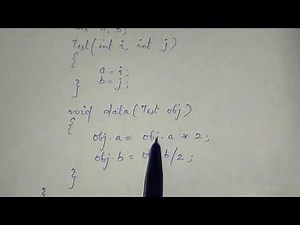 a, b;
Test(int i, int j)
{
a = i;
b = j;
}
void data(Test obj)
{
obj.a = obj.a * 2;
obj.b = b/2;
}
}